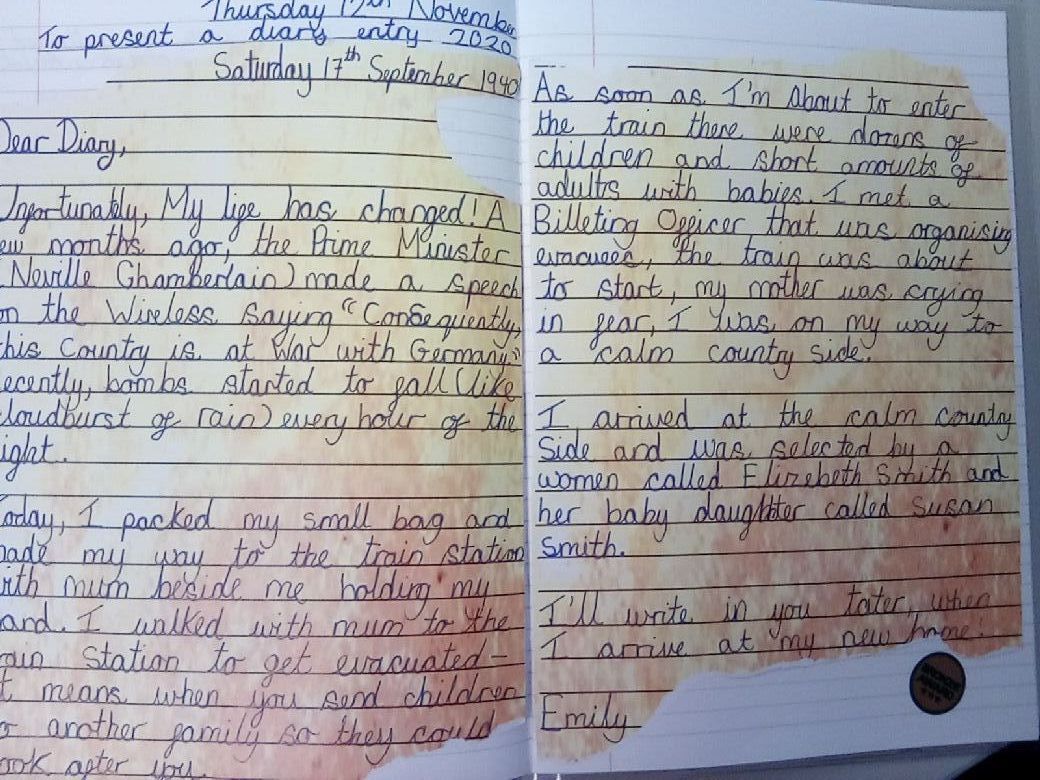 Thursday 12th November
To present a diary entry 2020
Saturday 17th September 1940
Dear Diary,
Unfortunatly, My life has changed! A
ew months ago, the Prime Minister
(Neville Chamberlain) made a speech
on the Wireless saying "Consequently,
his Country is at War with Germany."
ecently, bombs started to fall (like
cloudburst of rain) every hour of the
ight.
oday, I packed my small bag and
made my way to the train station
ith mum beside me holding my
and. I walked with mum to the
rain station to get evacuated-
t means when you send children
o another family so they could
ook after you.
As soon as I'm About to enter
the train there were dozens of
children and short amounts of
adults with babies. I met a
Billeting Officer that was organising
evacuees, the train was about
to start, my mother was crying
in fear, I was on my way to
a calm country side.
I arrived at the calm country
side and was selected by a
women called Elizebeth Smith and
her baby daughter called Susan
Smith.
I'll write in you later, when
I arrive at my new home!
Emily